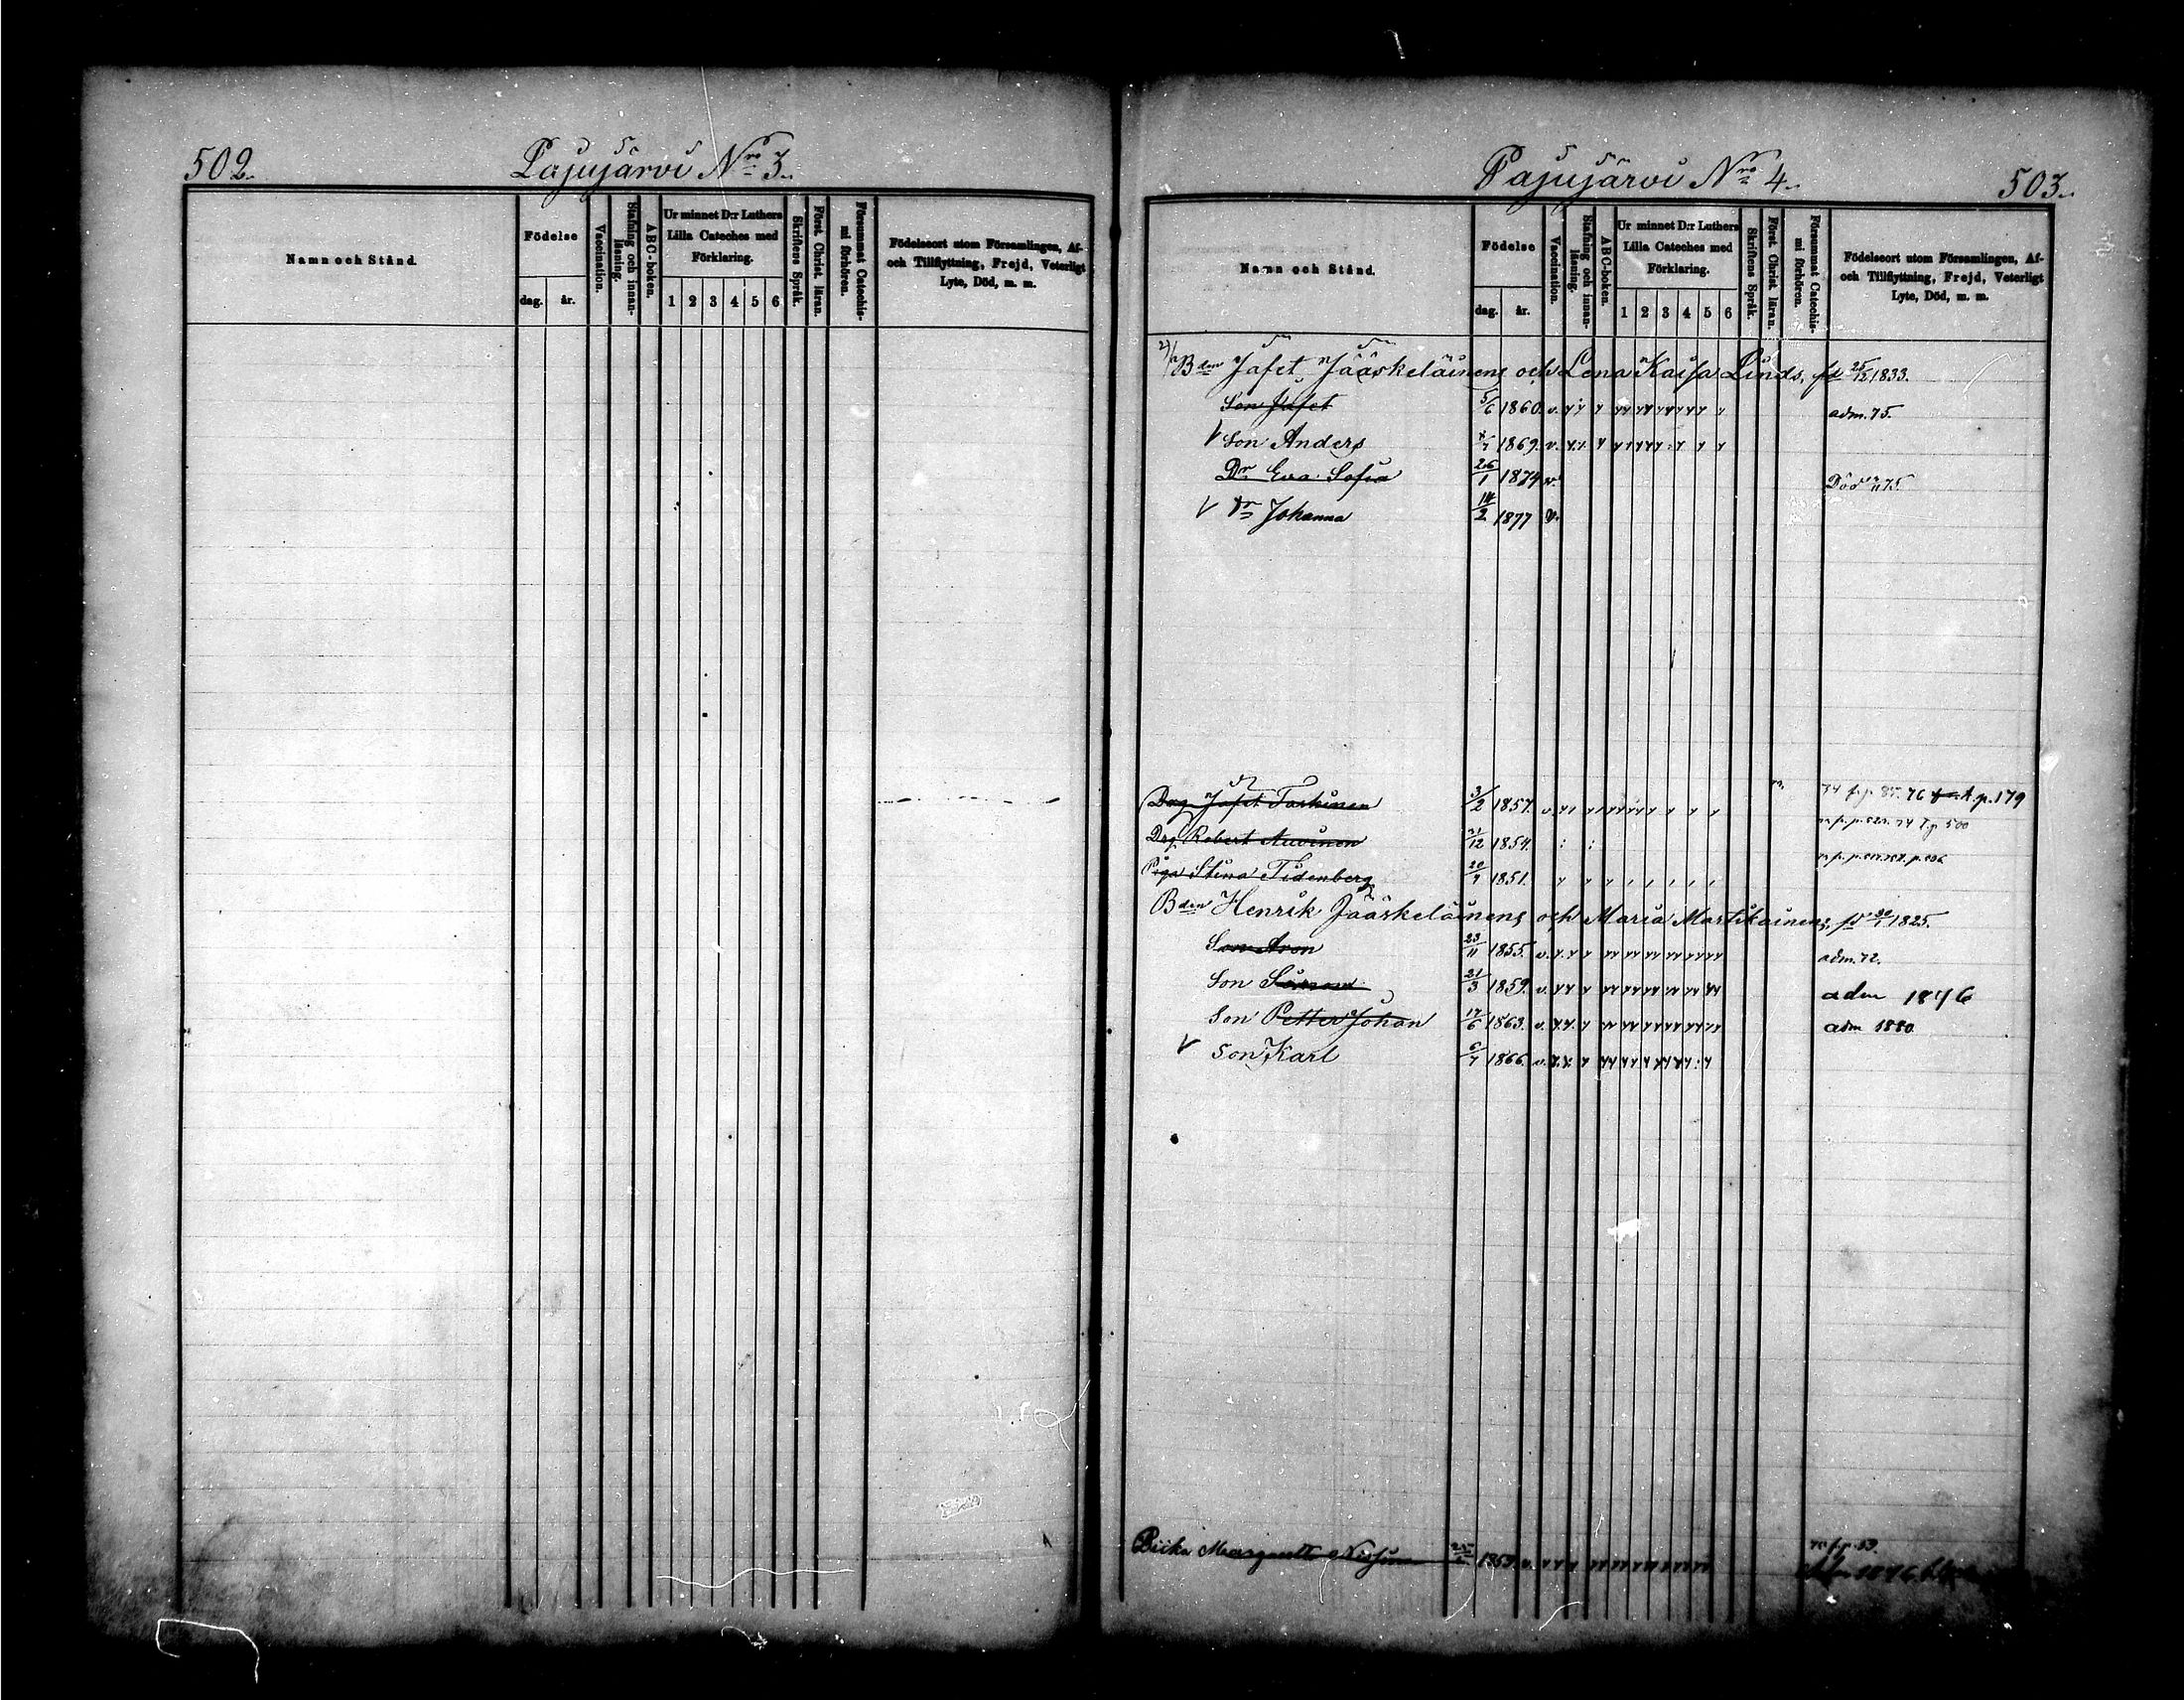 502.
Pajujärvi Nro 3.
Namn och Stånd.
Födelse
dag. år.
Vaccination.
Stafning och innan-läsning.
ABC-boken.
Ur minnet D:r Luthers
Lilla Cateches med
Förklaring.
1 2 3 4 5 6
Skriftens Språk.
Först. Christ. läran.
Försummat Catechis-mi förhören.
Födelseort utom Församlingen, Af-
och Tillflyttning, Frejd, Veterligt
Lyte, Död, m. m.
Pajujärvi Nro 4.
503.
Namn och Stånd.
Födelse
dag. år.
Vaccination.
Stafning och innan-läsning.
ABC-boken.
Ur minnet D:r Luthers
Lilla Cateches med
Förklaring.
1 2 3 4 5 6
Skriftens Språk.
Först. Christ. läran.
Försummat Catechis-mi förhören.
Födelseort utom Församlingen, Af-
och Tillflyttning, Frejd, Veterligt
Lyte, Död, m. m.
Bden Jafet Jääskeläinens och Lena Kaisa Linds, fd 25/12 1833.
Son Jafet 5/6 1860. v. adm. 75.
Son Anders 1869. v.
Dr Eva Sofia 26/1 1874 v. Död 75.
Dr Johanna 14/2 1877 v.
Drg Jafet Taskinen 3/2 1857. v. 76 p. 179
Drg Robert Auvinen 21/12 1854. 74 500
Piga Stina Tidenberg 20/9 1851.
Bden Henrik Jääskeläinens och Maria Martikainens, fd 1825.
Son Aron 23/11 1855. v. adm. 72.
Son 21/3 1859. v. adm 1876
Son Petter Johan 17/6 1863. v. adm 1880
Son Karl 6/7 1866. v.
Margareta 1859. v. p. 53.